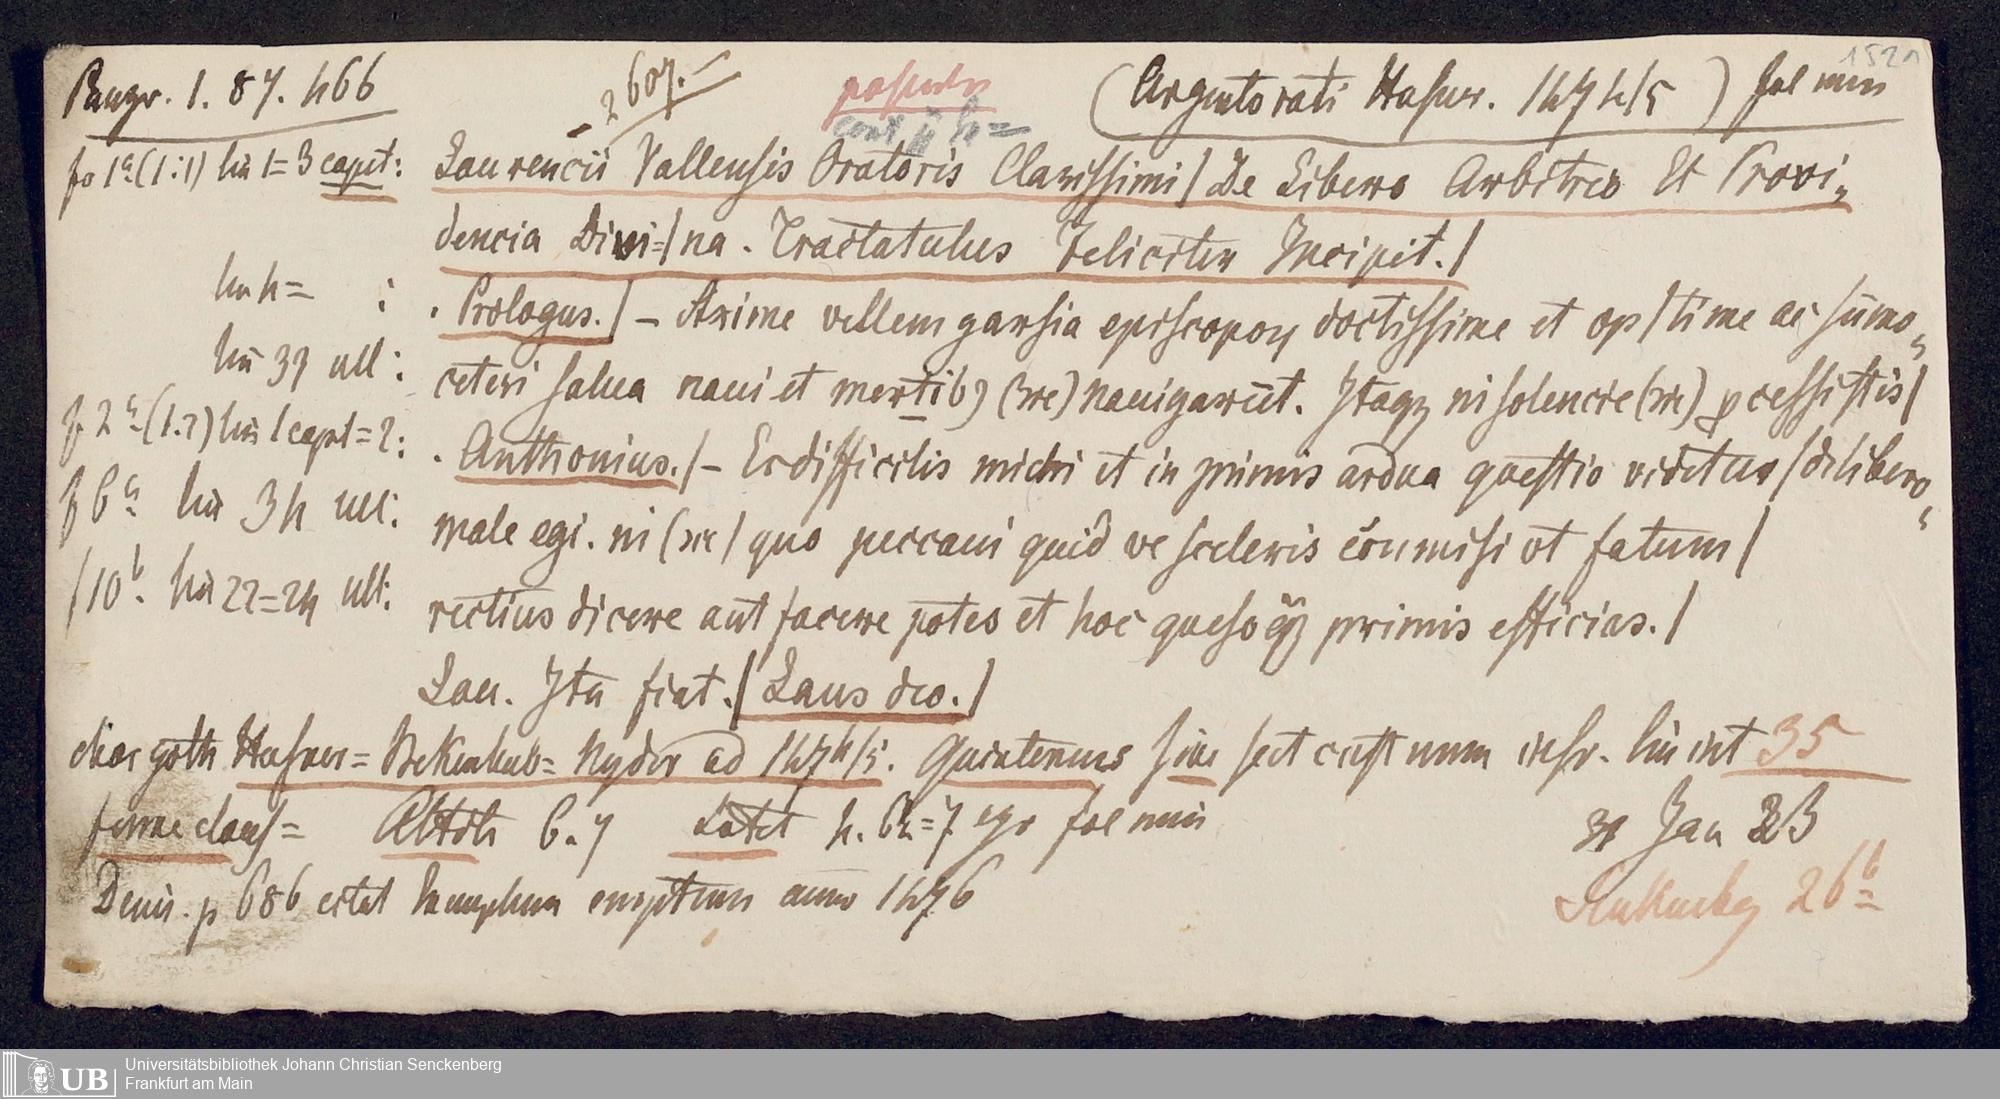 Panzr. 1. 87. 466
2607.-
(Argentorati Husner. 1474/5) fol min
152
fo 1ª (1:1) lin 1=3 capit: Laurencii Vallensis Oratoris Clarissimi / De Libero Arbitrio Et Provi,,
dencia Divi=/na. Tractatulus Feliciter Incipit./
lin 4= : . Prologus./ – Axime vellem garsia episcopoꝝ doctissime et op/time ac sūmo,,
lin 37 ult: ceteri salua naui et mertibꝯ (sic) nauigarūt. Itaqꝫ ni solencie (sic) ꝓcessistis/
f 2ª (1.2) lin 1 capt=2: . Anthonius./ – Ecdifficilis michi et in primis ardua questio videtur / delibero,,
f 6ª lin 34 ult: male egi. ni (sic) quo peccaui quid ve sceleris cōmmisi vt fatum/
f 10ᵇ lin 22=24 ult: rectius dicere aut facere potes et hoc queso primis efficias./
Lau. Ita fiat./ Laus deo./
char goth Husner= Bekenhub= Nyder ad 1474/5. Quinternus sine sect cust num inscr. lin int 35
ferme claus= 6.7 h. 6½=7 fol min
31 Jan 23
Denis. p 686 emptum anno 1476
26ᵇ
Universitätsbibliothek Johann Christian Senckenberg
UB Frankfurt am Main